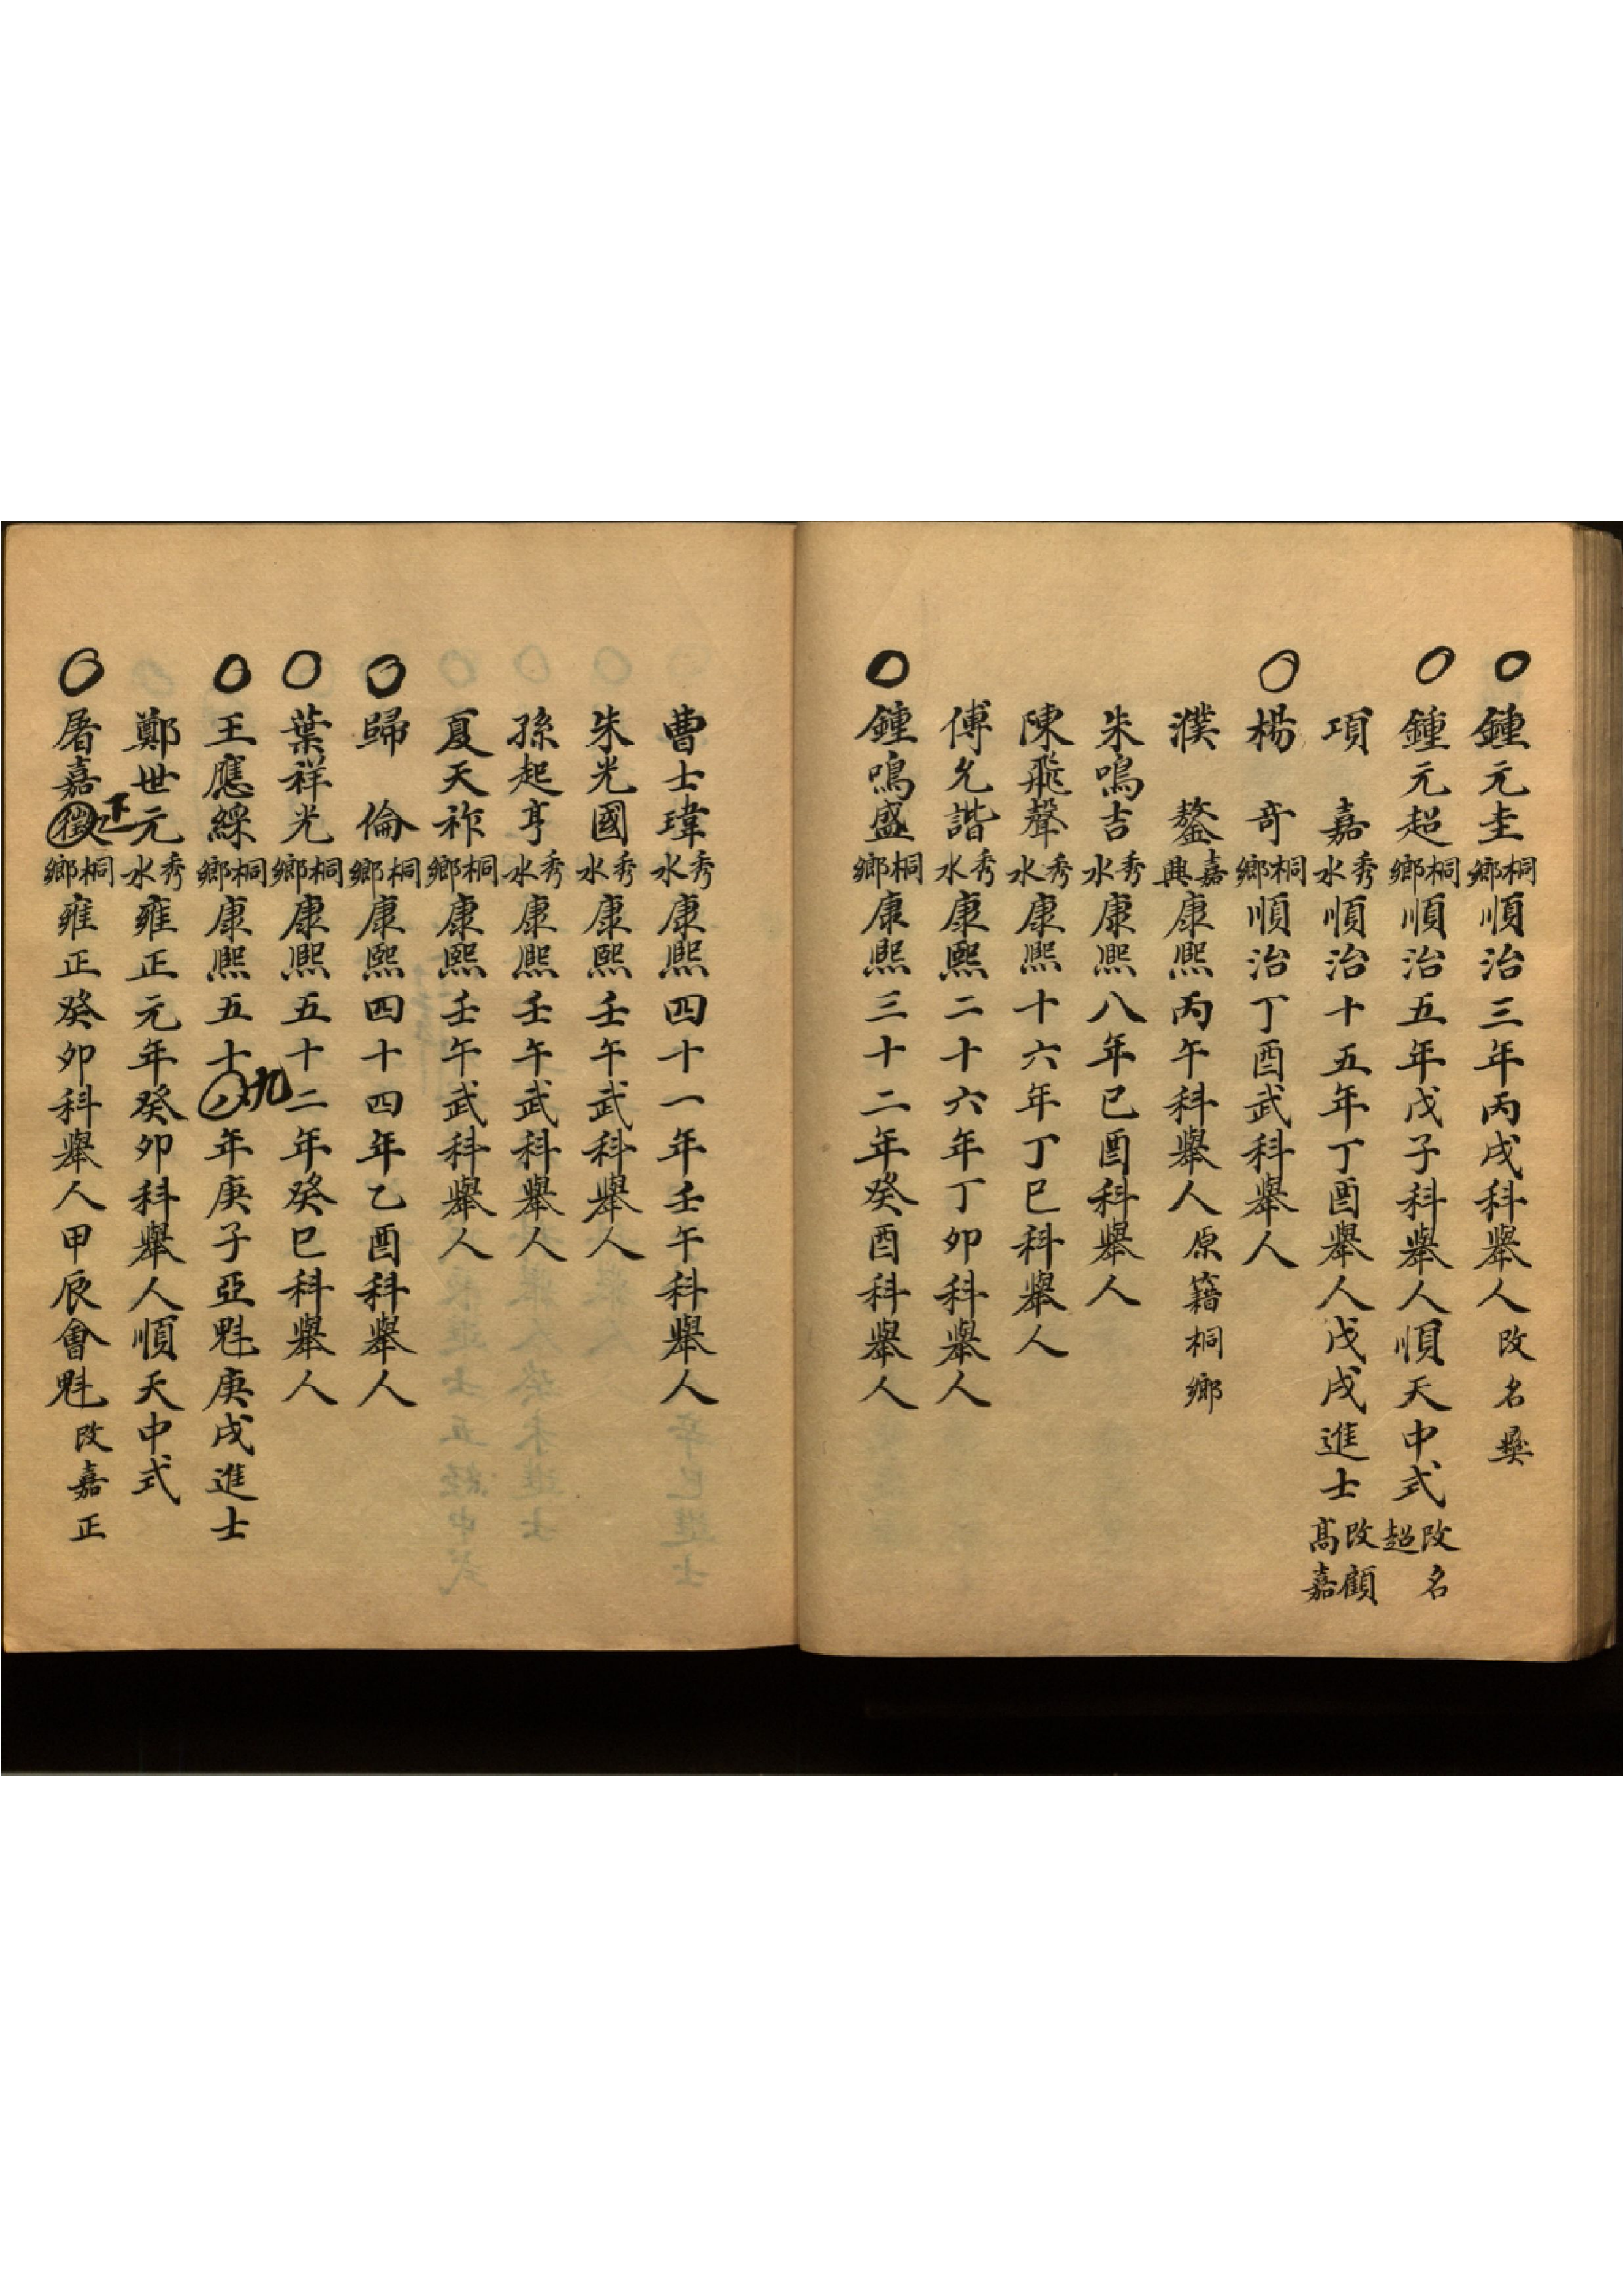 鍾元圭桐鄉順治三年丙戌科舉人改名
鍾元超桐鄉順治五年戊子科舉人順天中式改名超
項嘉秀水順治十五年丁酉舉人戊戌進士改顧高嘉
楊奇桐鄉順治丁酉武科舉人
濮鏊嘉興康熙丙午科舉人原籍桐鄉
朱鳴吉秀水康熙八年已酉科舉人
陳飛聲秀水康熙十六年丁巳科舉人
傅允諧秀水康熙二十六年丁卯科舉人
鍾鳴盛桐鄉康熙三十二年癸酉科舉人
曹士瑋秀水康熙四十一年壬午科舉人
朱光國秀水康熙壬午武科舉人
孫起亨秀水康熙壬午武科舉人
夏天祚桐鄉康熙壬午武科舉人
歸倫桐鄉康熙四十四年乙酉科舉人
葉祥光桐鄉康熙五十二年癸巳科舉人
王應綵桐鄉康熙五十八九年庚子亞魁庚戌進士
鄭世元秀水雍正元年癸卯科舉人順天中式
屠嘉徵正桐鄉雍正癸卯科舉人甲辰會魁改嘉正